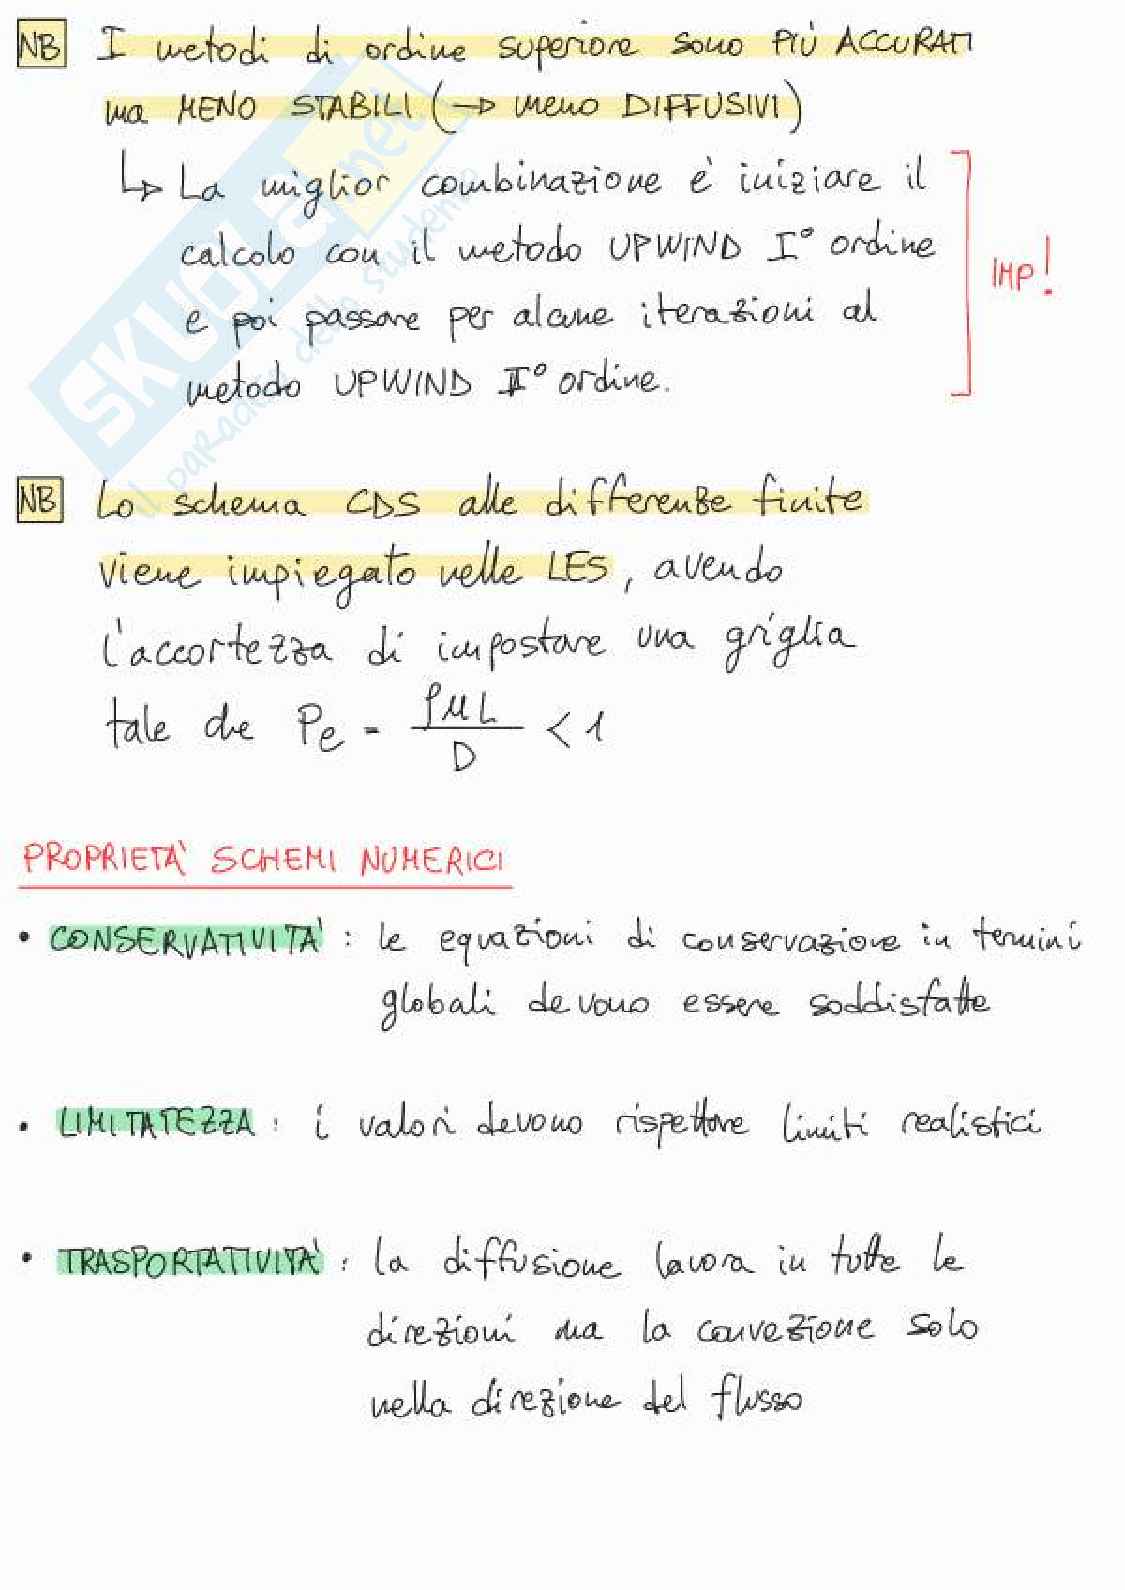 NB I metodi di ordine superiore sono PIÙ ACCURATI
ma MENO STABILI (→ meno DIFFUSIVI)
↳ La miglior combinazione è iniziare il
calcolo con il metodo UPWIND I° ordine
e poi passare per alcune iterazioni al
metodo UPWIND II° ordine.
IMP!
NB Lo schema CDS alle differenze finite
viene impiegato nelle LES, avendo
l'accortezza di impostare una griglia
tale che Pe = ρuL / D < 1
PROPRIETÀ SCHEMI NUMERICI
• CONSERVATIVITÀ : le equazioni di conservazione in termini
globali devono essere soddisfatte
• LIMITATEZZA : i valori devono rispettare limiti realistici
• TRASPORTATIVITÀ : la diffusione lavora in tutte le
direzioni ma la convezione solo
nella direzione del flusso
SKUOLA.net
il paradiso dello studente